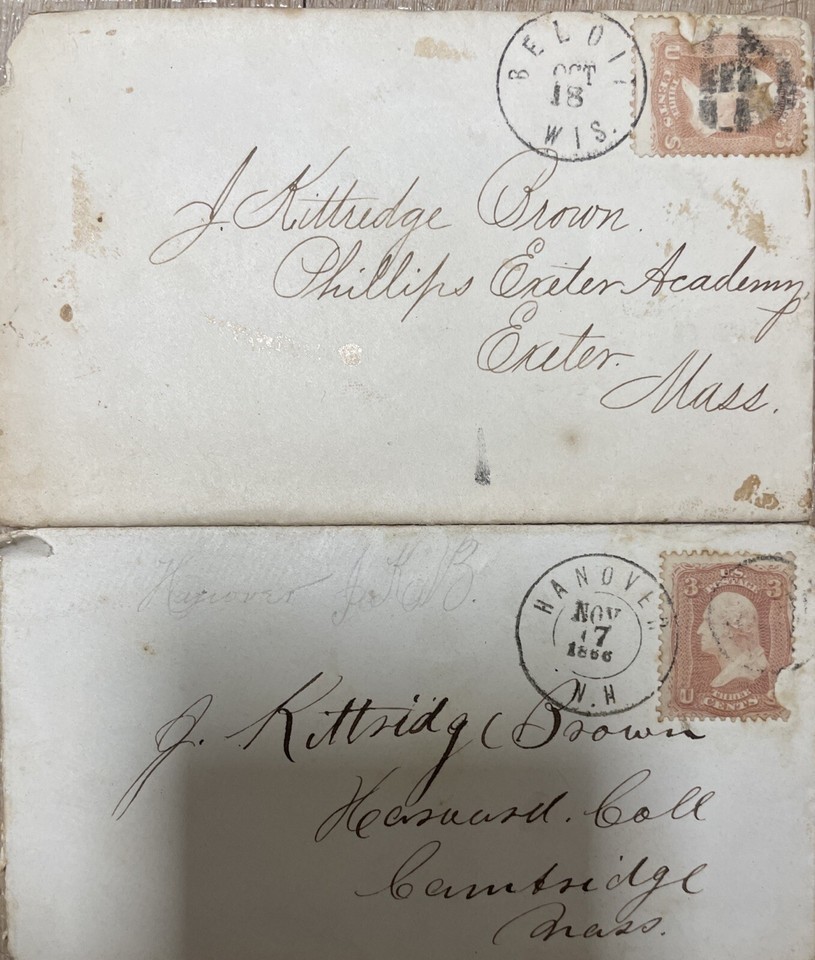 BELOIT
OCT
18
WIS.
THREE CENTS
U
3
J. Kittredge Brown.
Phillips Exeter Academy
Exeter.
Mass.
Hanover J.K.B.
HANOVER
NOV
17
1866
N.H
3 U.S. 3
POSTAGE
U
THREE
CENTS
J. Kittridg Brown
Harvard. Coll
Cambridge
Mass.